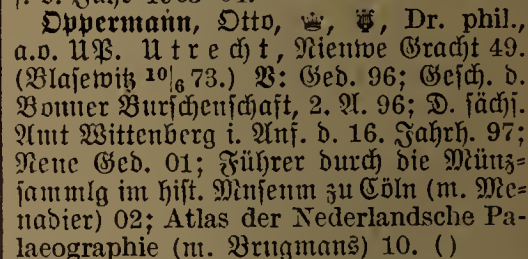 f. d. Jahr 1903–04.
Oppermann, Otto, Dr. phil.,
a.o. UP. Utrecht, Nieuwe Gracht 49.
(Blasewitz 10|6 73.) V: Ged. 96; Gesch. d.
Bonner Burschenschaft, 2. A. 96; D. sächs.
Amt Wittenberg i. Anf. d. 16. Jahrh. 97;
Neue Ged. 01; Führer durch die Münz=
sammlg im hist. Museum zu Cöln (m. Me=
nadier) 02; Atlas der Nederlandsche Pa-
laeographie (m. Brugmans) 10. ()